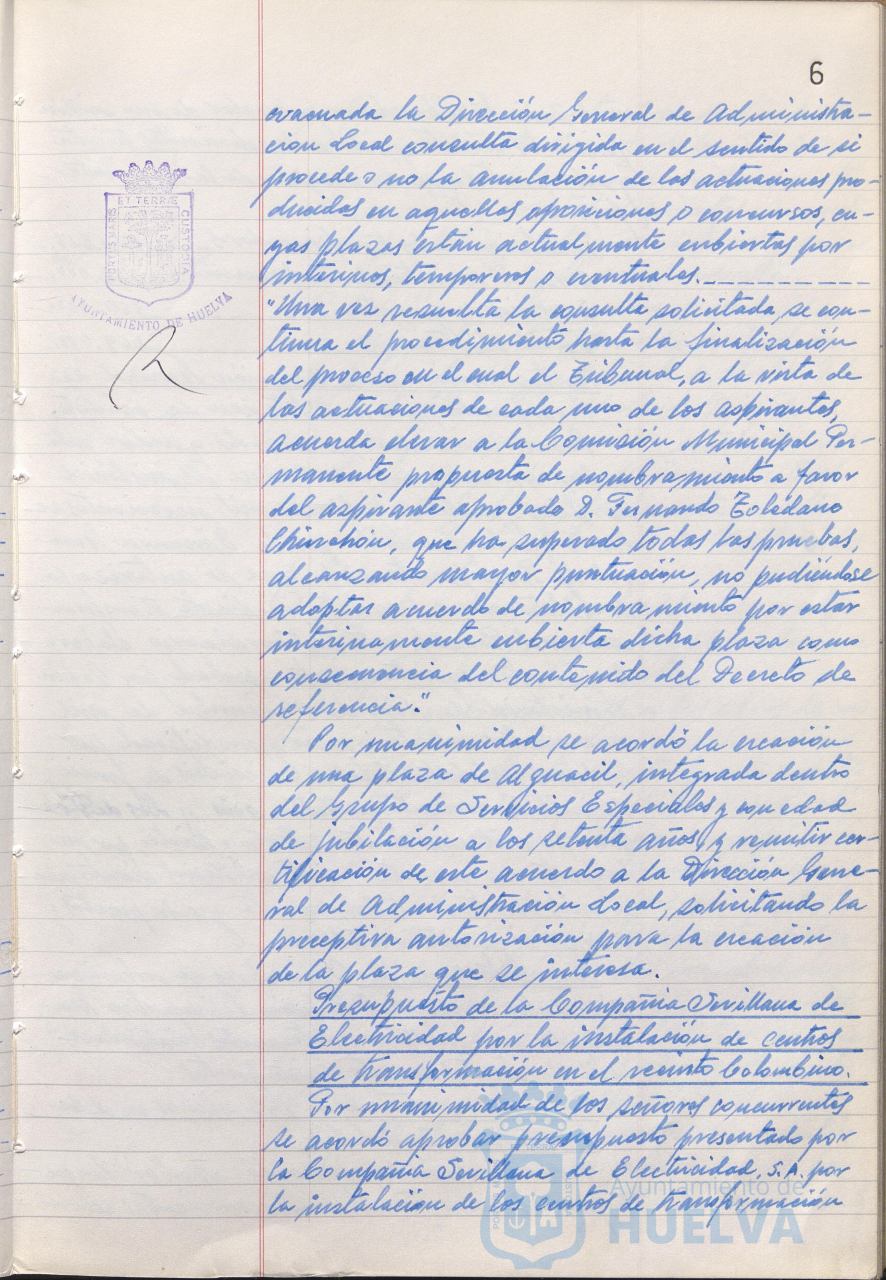 6
evacuada la Dirección General de Administra-
ción Local consulta dirigida en el sentido de si
procede o no la anulación de las actuaciones pro-
ducidas en aquellas oposiciones o concursos, cu-
yas plazas están actualmente cubiertas por
interinos, temporeros o eventuales.
"Una vez resuelta la consulta solicitada, se con-
tinua el procedimiento hasta la finalización
del proceso en el cual el Tribunal, a la vista de
las actuaciones de cada uno de los aspirantes,
acuerda elevar a la Comisión Municipal Per-
manente propuesta de nombramiento a favor
del aspirante aprobado D. Fernando Toledano
que ha superado todas las pruebas,
alcanzando mayor puntuación, no pudiéndose
adoptar acuerdo de nombramiento por estar
interinamente cubierta dicha plaza como
consecuencia del contenido del Decreto de
referencia."
Por unanimidad se acordó la creación
de una plaza de Alguacil, integrada dentro
del Grupo de Servicios Especiales y con edad
de jubilación a los setenta años, y remitir cer-
tificación de este acuerdo a la Dirección Gene-
ral de Administración Local, solicitando la
preceptiva autorización para la creación
de la plaza que se interesa.
Presupuesto de la Compañia Sevillana de
Electricidad por la instalación de centros
de transformación en el recinto Colombino.
Por unanimidad de los señores concurrentes
se acordó aprobar presupuesto presentado por
la Compañia Sevillana de Electricidad, S.A. por
la instalación de los centros de transformación
PORTUS MARIS ET TERRÆ CUSTODIA
AYUNTAMIENTO DE HUELVA
Ayuntamiento de
HUELVA